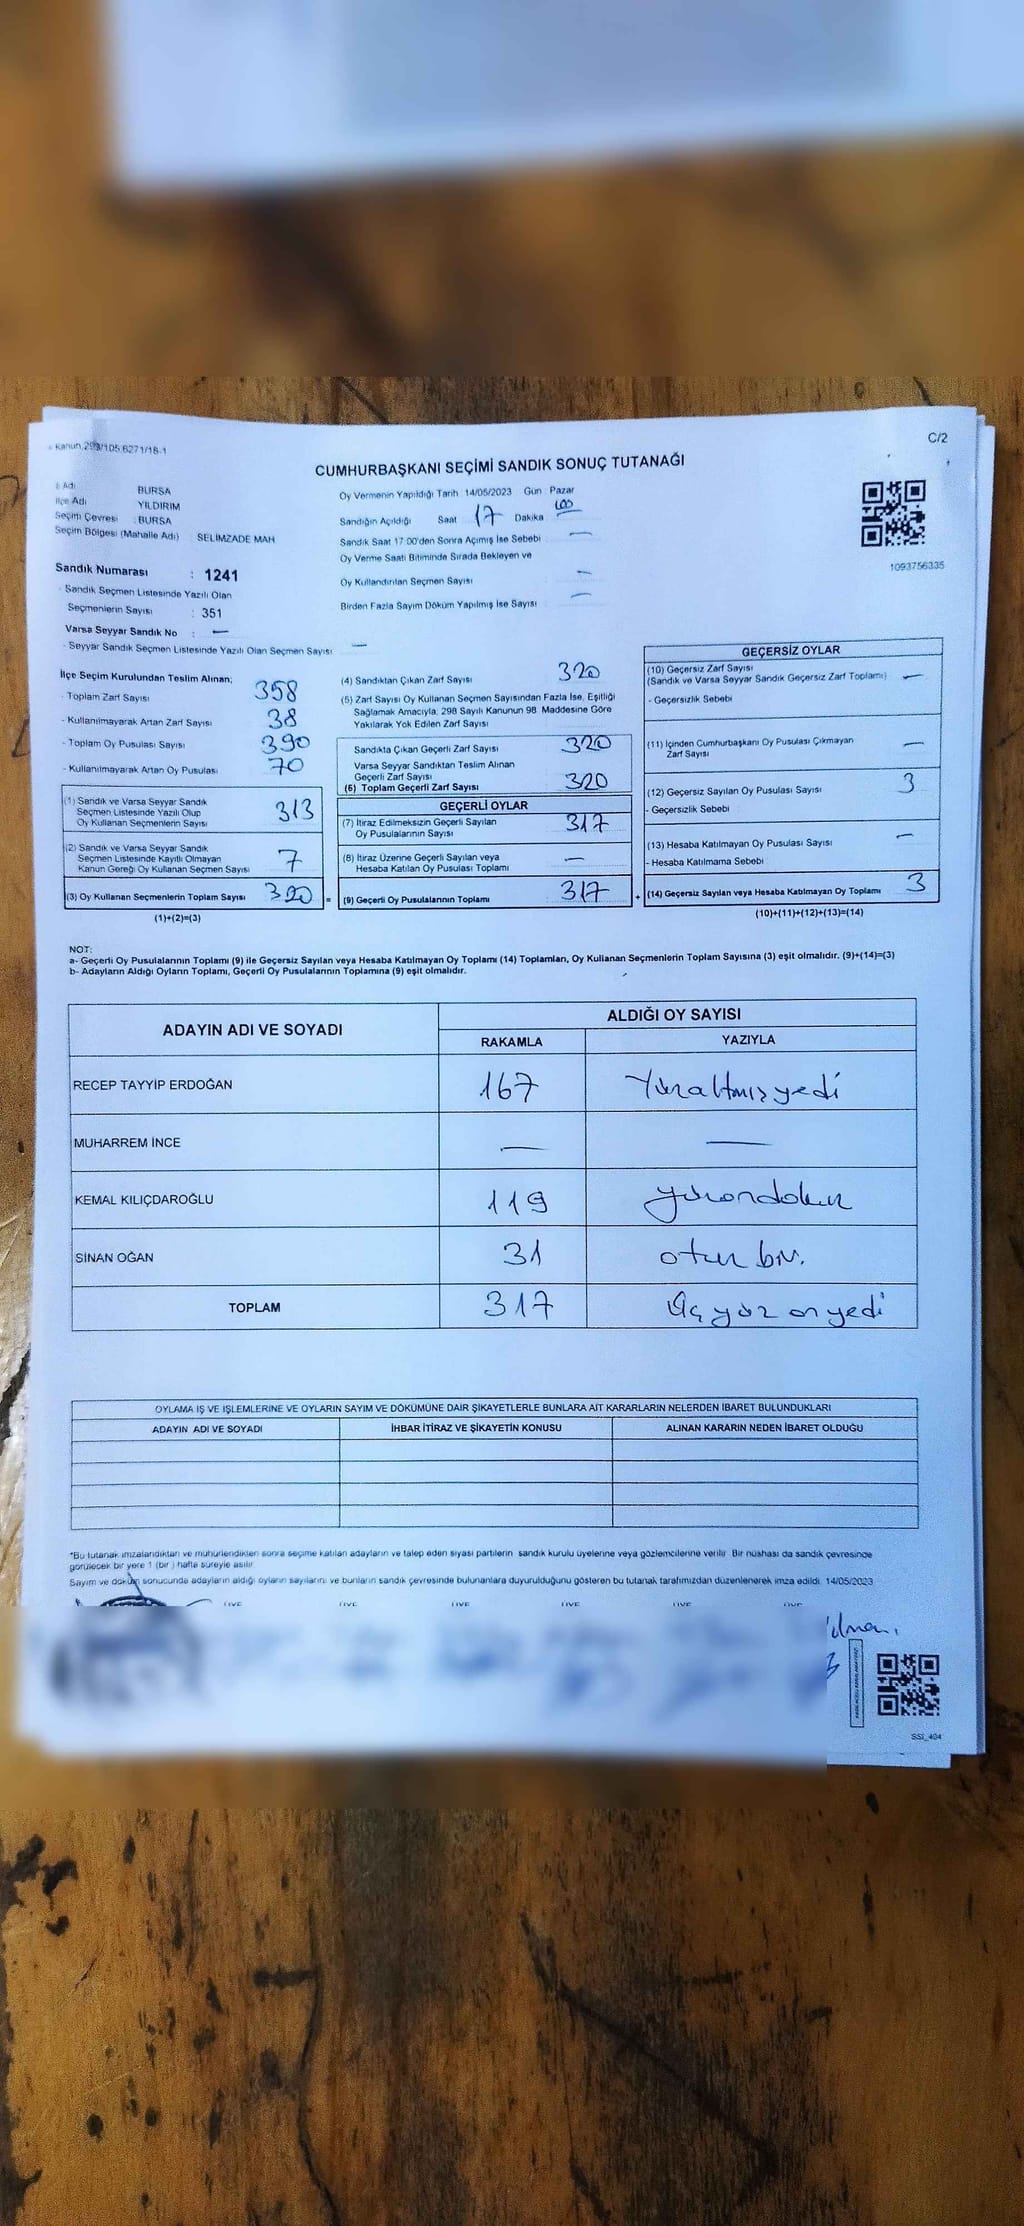 Kanun.298/105.6271/18-1
C/2
CUMHURBAŞKANI SEÇİMİ SANDIK SONUÇ TUTANAĞI
İl Adı BURSA
İlçe Adı YILDIRIM
Seçim Çevresi : BURSA
Seçim Bölgesi (Mahalle Adı) SELİMZADE MAH
Sandık Numarası : 1241
- Sandık Seçmen Listesinde Yazılı Olan
Seçmenlerin Sayısı : 351
Varsa Seyyar Sandık No : —
- Seyyar Sandık Seçmen Listesinde Yazılı Olan Seçmen Sayısı —
Oy Vermenin Yapıldığı Tarih 14/05/2023 Gün : Pazar
Sandığın Açıldığı Saat 17 Dakika 00
Sandık Saat 17:00'den Sonra Açımış İse Sebebi —
Oy Verme Saati Bitiminde Sırada Bekleyen ve
Oy Kullandırılan Seçmen Sayısı —
Birden Fazla Sayım Döküm Yapılmış İse Sayısı —
1093756335
İlçe Seçim Kurulundan Teslim Alınan;
- Toplam Zarf Sayısı 358
- Kullanılmayarak Artan Zarf Sayısı 38
- Toplam Oy Pusulası Sayısı 390
- Kullanılmayarak Artan Oy Pusulası 70
(1) Sandık ve Varsa Seyyar Sandık
Seçmen Listesinde Yazılı Olup
Oy Kullanan Seçmenlerin Sayısı 313
(2) Sandık ve Varsa Seyyar Sandık
Seçmen Listesinde Kayıtlı Olmayan
Kanun Gereği Oy Kullanan Seçmen Sayısı 7
(3) Oy Kullanan Seçmenlerin Toplam Sayısı 320 =
(1)+(2)=(3)
(4) Sandıktan Çıkan Zarf Sayısı 320
(5) Zarf Sayısı Oy Kullanan Seçmen Sayısından Fazla İse, Eşitliği
Sağlamak Amacıyla, 298 Sayılı Kanunun 98. Maddesine Göre
Yakılarak Yok Edilen Zarf Sayısı
Sandıkta Çıkan Geçerli Zarf Sayısı 320
Varsa Seyyar Sandıktan Teslim Alınan
Geçerli Zarf Sayısı
(6) Toplam Geçerli Zarf Sayısı 320
GEÇERLİ OYLAR
(7) İtiraz Edilmeksizin Geçerli Sayılan
Oy Pusulalarının Sayısı 317
(8) İtiraz Üzerine Geçerli Sayılan veya
Hesaba Katılan Oy Pusulası Toplamı —
(9) Geçerli Oy Pusulalarının Toplamı 317 +
GEÇERSİZ OYLAR
(10) Geçersiz Zarf Sayısı
(Sandık ve Varsa Seyyar Sandık Geçersiz Zarf Toplamı) —
- Geçersizlik Sebebi
(11) İçinden Cumhurbaşkanı Oy Pusulası Çıkmayan
Zarf Sayısı —
(12) Geçersiz Sayılan Oy Pusulası Sayısı 3
- Geçersizlik Sebebi
(13) Hesaba Katılmayan Oy Pusulası Sayısı —
- Hesaba Katılmama Sebebi
(14) Geçersiz Sayılan veya Hesaba Katılmayan Oy Toplamı 3
(10)+(11)+(12)+(13)=(14)
NOT:
a- Geçerli Oy Pusulalarının Toplamı (9) ile Geçersiz Sayılan veya Hesaba Katılmayan Oy Toplamı (14) Toplamları, Oy Kullanan Seçmenlerin Toplam Sayısına (3) eşit olmalıdır. (9)+(14)=(3)
b- Adayların Aldığı Oyların Toplamı, Geçerli Oy Pusulalarının Toplamına (9) eşit olmalıdır.
ADAYIN ADI VE SOYADI ALDIĞI OY SAYISI
RAKAMLA YAZIYLA
RECEP TAYYİP ERDOĞAN 167 Yüzaltmışyedi
MUHARREM İNCE — —
KEMAL KILIÇDAROĞLU 119 yüzondokuz
SİNAN OĞAN 31 otuz bir.
TOPLAM 317 Üç yüz on yedi
OYLAMA İŞ VE İŞLEMLERİNE VE OYLARIN SAYIM VE DÖKÜMÜNE DAİR ŞİKAYETLERLE BUNLARA AİT KARARLARIN NELERDEN İBARET BULUNDUKLARI
ADAYIN ADI VE SOYADI İHBAR İTİRAZ VE ŞİKAYETİN KONUSU ALINAN KARARIN NEDEN İBARET OLDUĞU
*Bu tutanak imzalandıktan ve mühürlendikten sonra seçime katılan adayların ve talep eden siyasi partilerin sandık kurulu üyelerine veya gözlemcilerine verilir. Bir nüshası da sandık çevresinde
görülecek bir yere 1 (bir) hafta süreyle asılır.
Sayım ve döküm sonucunda adayların aldığı oyların sayılarını ve bunların sandık çevresinde bulunanlara duyurulduğunu gösteren bu tutanak tarafımızdan düzenlenerek imza edildi. 14/05/2023
SSİ_404